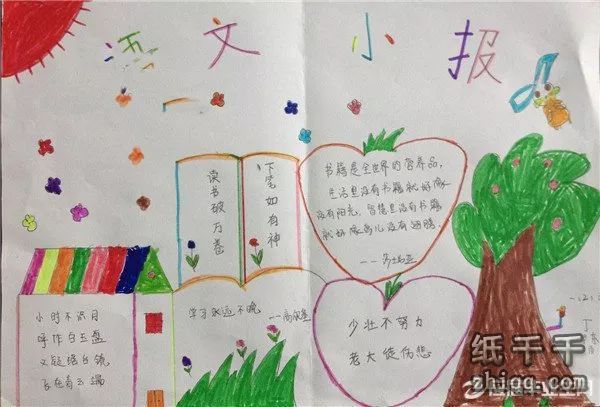 语文小报
读书破万卷
下笔如有神
书籍是全世界的营养品，
生活里没有书籍就好像
没有阳光，智慧里没有书籍
就好像鸟儿没有翅膀。
小时不识月
呼作白玉盘
又疑瑶台镜
飞在青云端
学习永远不晚
--高尔基
少壮不努力
老大徒伤悲
纸千千
zhiqq.com